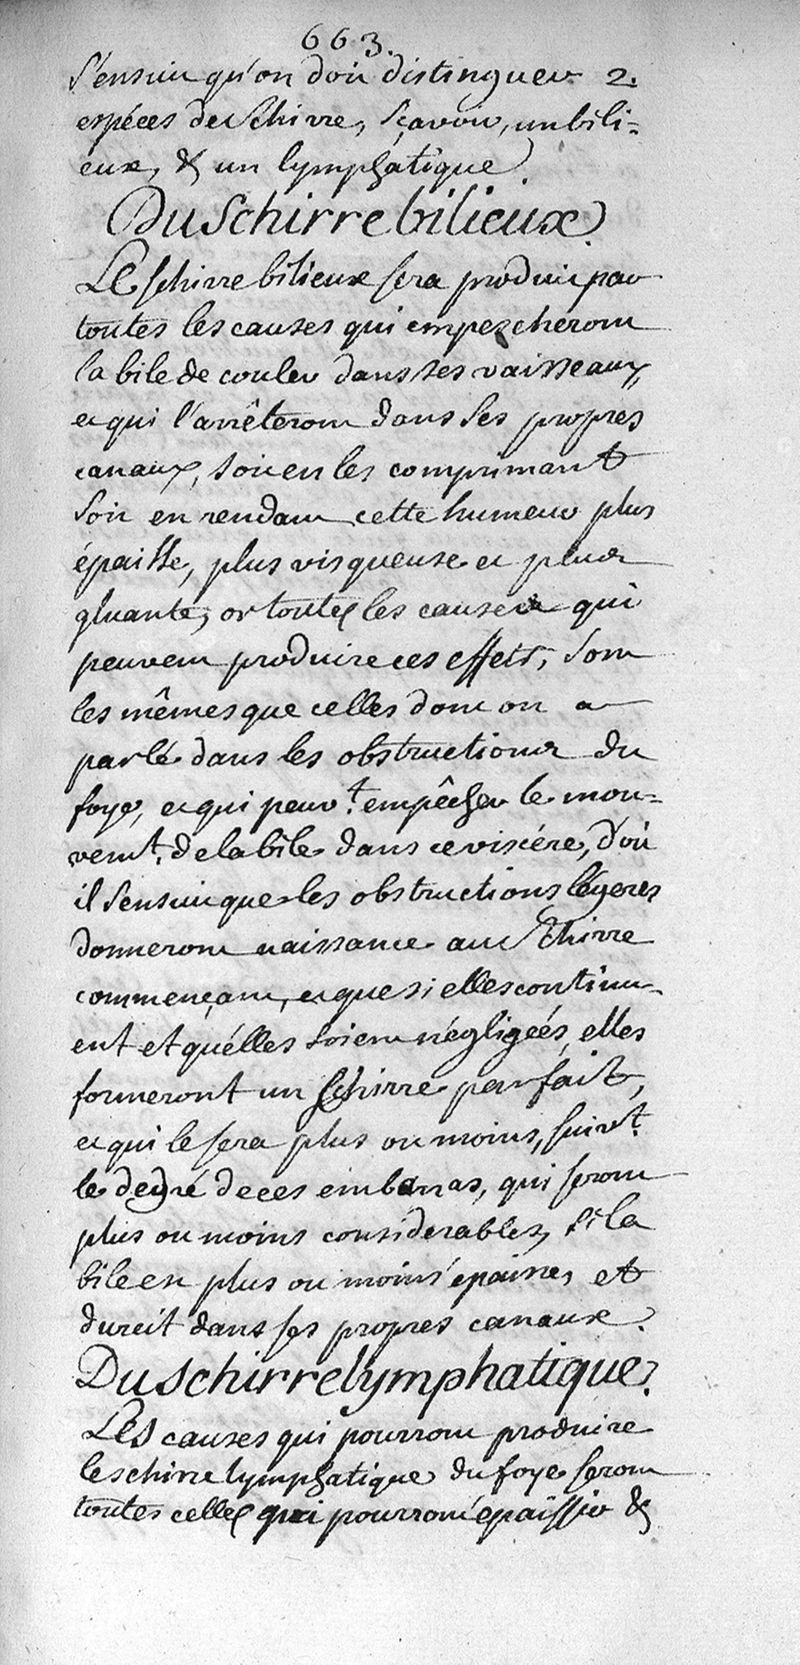 663.
s'ensuit qu'on doit distinguer 2.
espéces de schirre, sçavoir, un bili=
eux, & un lymphatique.
Du Schirre bilieux.
Le schirre bilieux sera produit par
toutes les causes qui empescheront
la bile de couler dans ses vaisseaux,
et qui l'arrêteront dans ses propres
canaux, soit en les comprimant
soit en rendant cette humeur plus
épaisse, plus visqueuse et plus
gluante, or toutes les causes qui
peuvent produire ces effets, sont
les mêmes que celles dont on a
parlé dans les obstructions du
foye, et qui peuvt. empêcher le mou=
vemt. de la bile dans ce viscére, d'où
il s'ensuit que les obstructions légeres
donneront naissance au schirre
commençant, et que si elles continu-
ent et qu'élles soient négligées, elles
formeront un schirre parfait,
et qui le sera plus ou moins, suivt.
le degré de ces embarras, qui seront
plus ou moins considerables, si la
bile est plus ou moins épaisse, et
durcit dans ses propres canaux.
Du schirre lymphatique.
Les causes qui pourront produire
le schirre lymphatique du foye seront
toutes celles qui pourront épaissir &